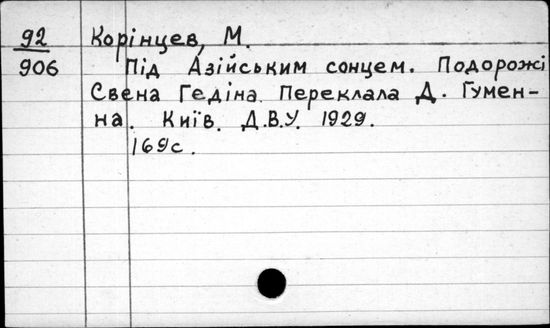 92 Корінцев, М.
906 Під Азійським сонцем. Подорожі
Свена Гедіна. Переклала Д. Гумен-
на. Київ. Д.В.У. 1929.
169с.